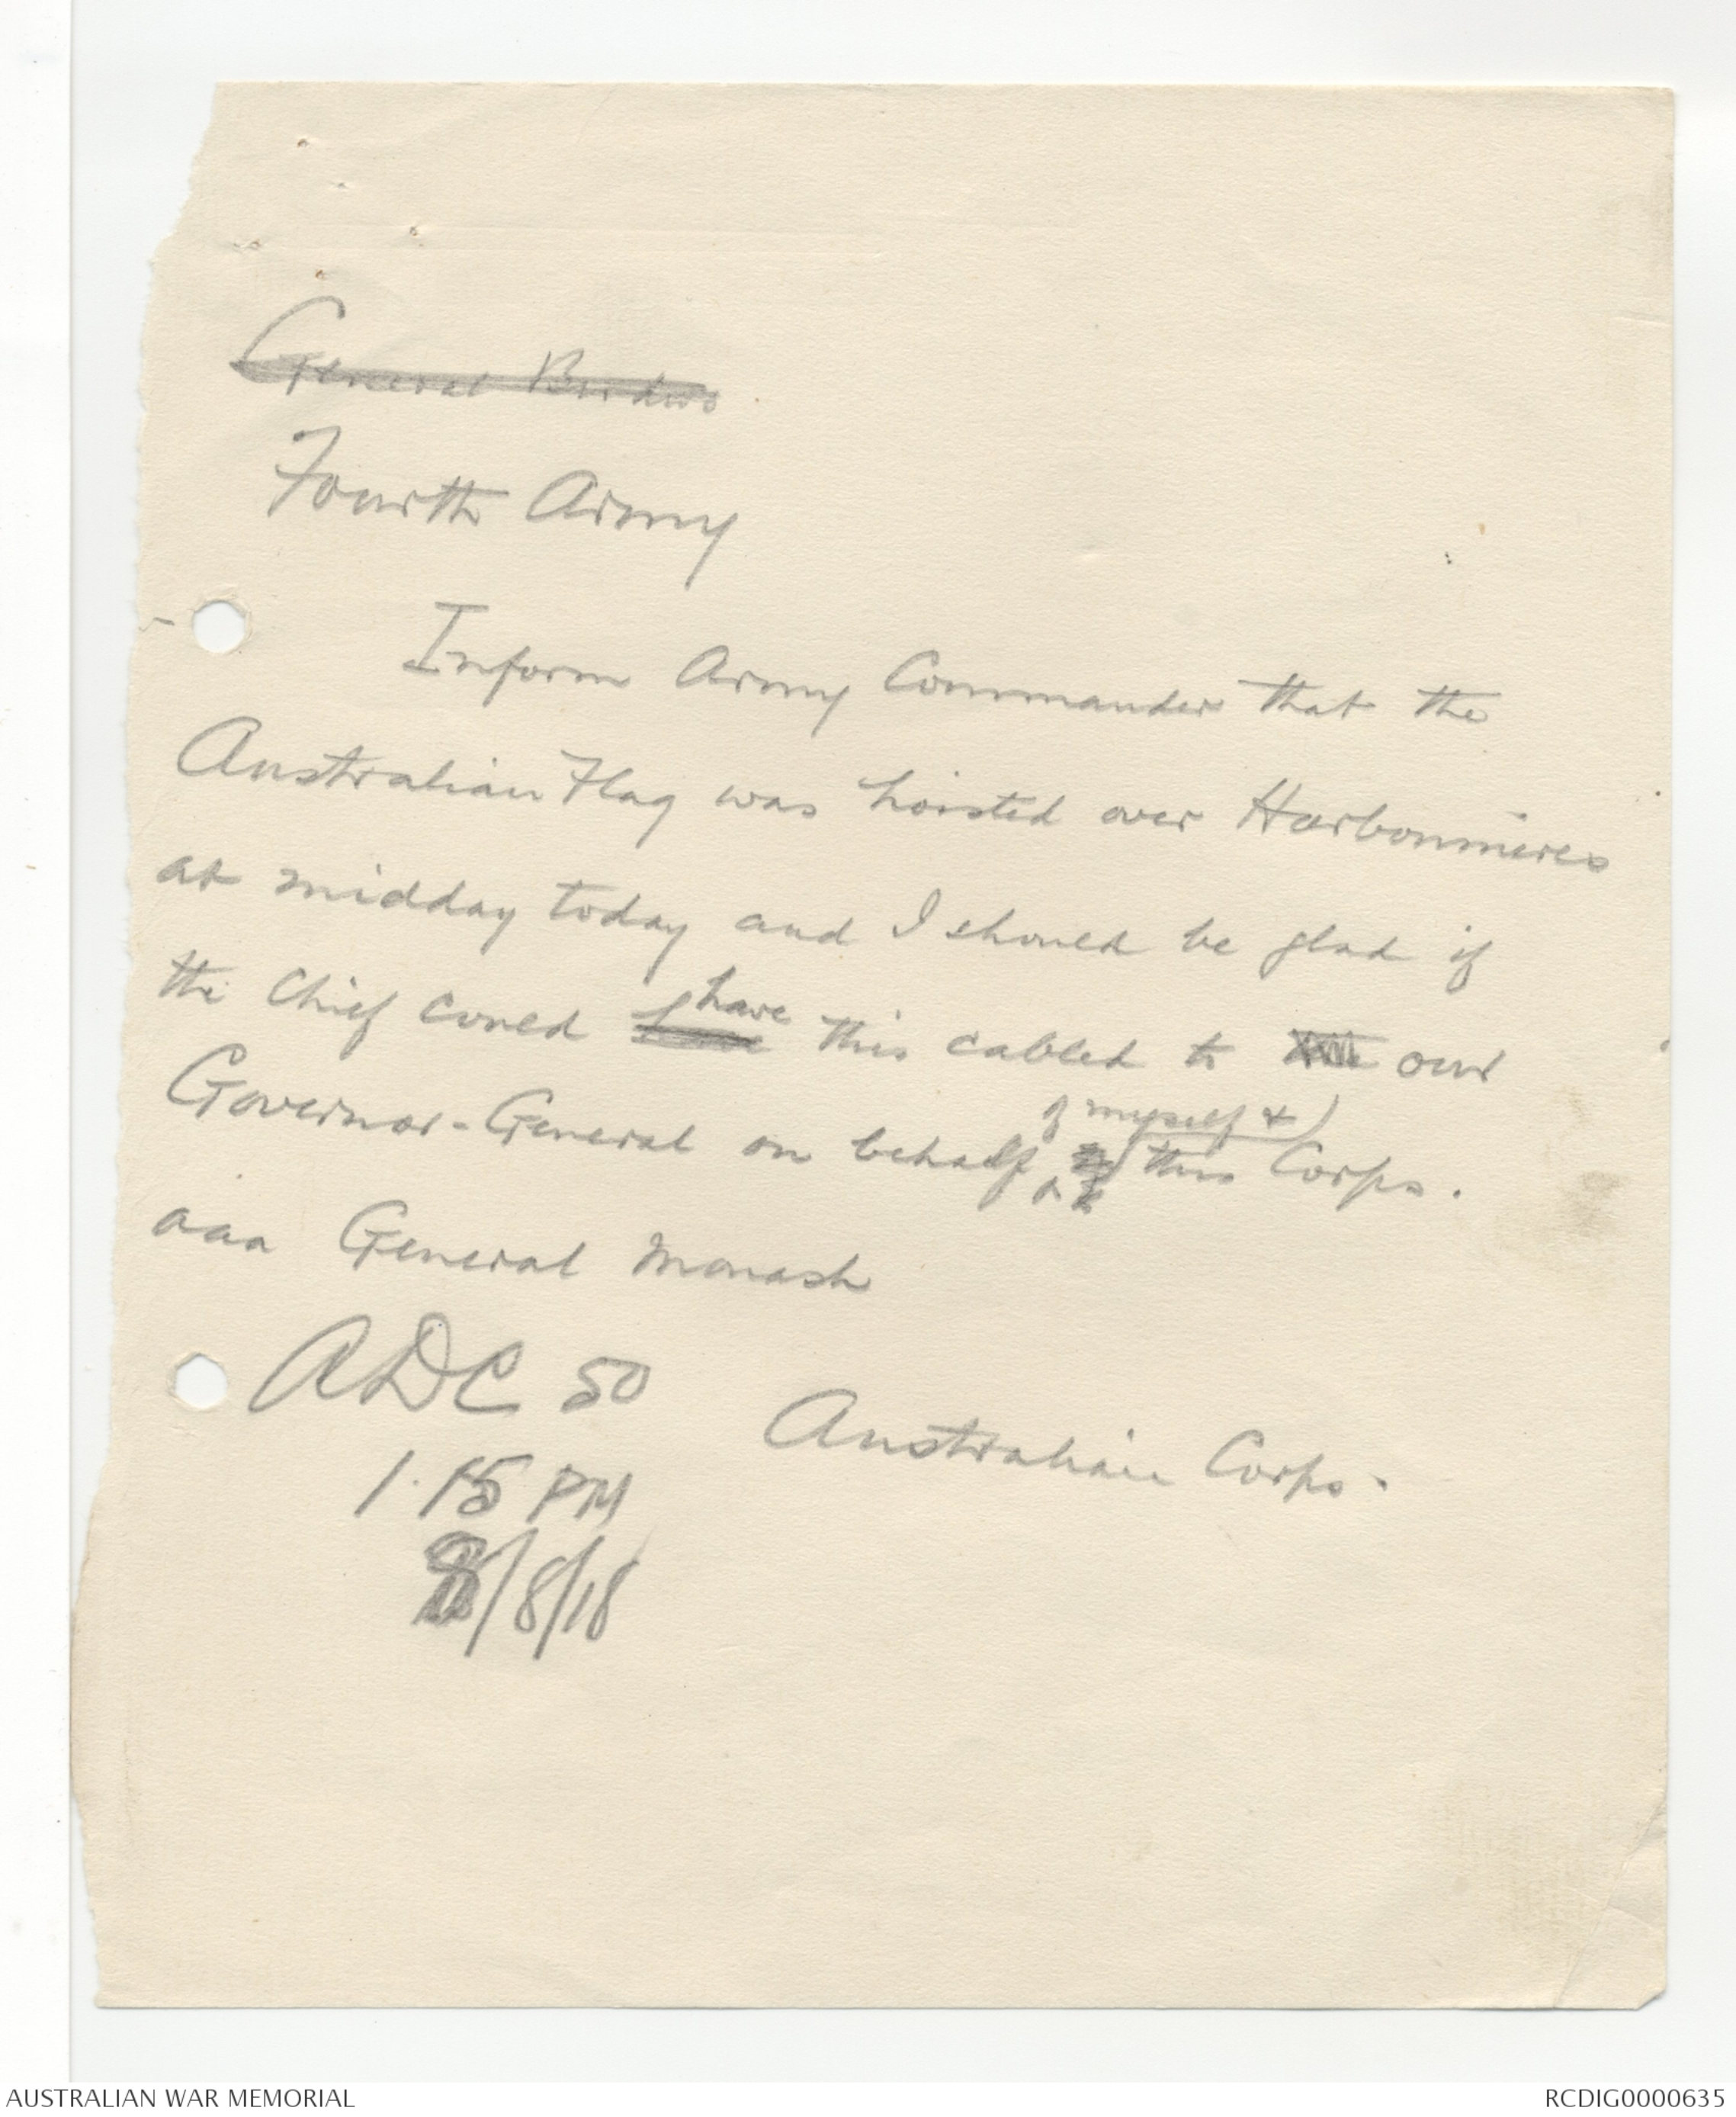 General Birdwo
Fourth Army
Inform Army Commander that the
Australian Flag was hoisted over Harbonnieres
at midday today and I should be glad if
the Chief could have this cabled to our
Governor-General on behalf of myself & this Corps.
aaa General Monash
ADC 50
Australian Corps.
1.15 PM
8/8/18
AUSTRALIAN WAR MEMORIAL
RCDIG0000635